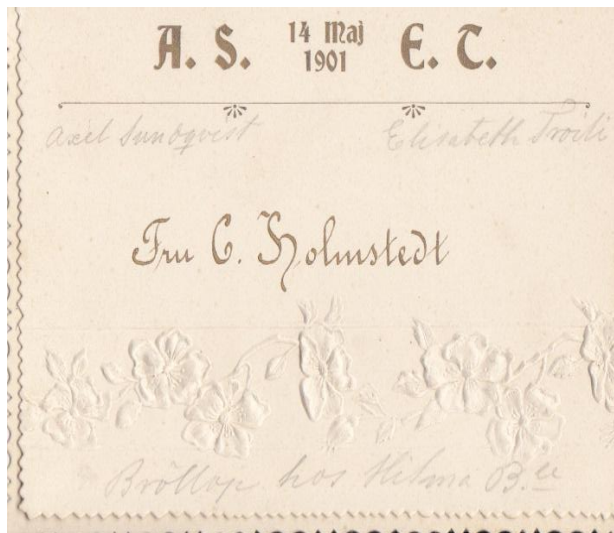 A. S. 14 Maj 1901 E. T.
Axel Sundqvist Elisabeth Troili
Fru C. Holmstedt
Bröllop hos Hilma B.